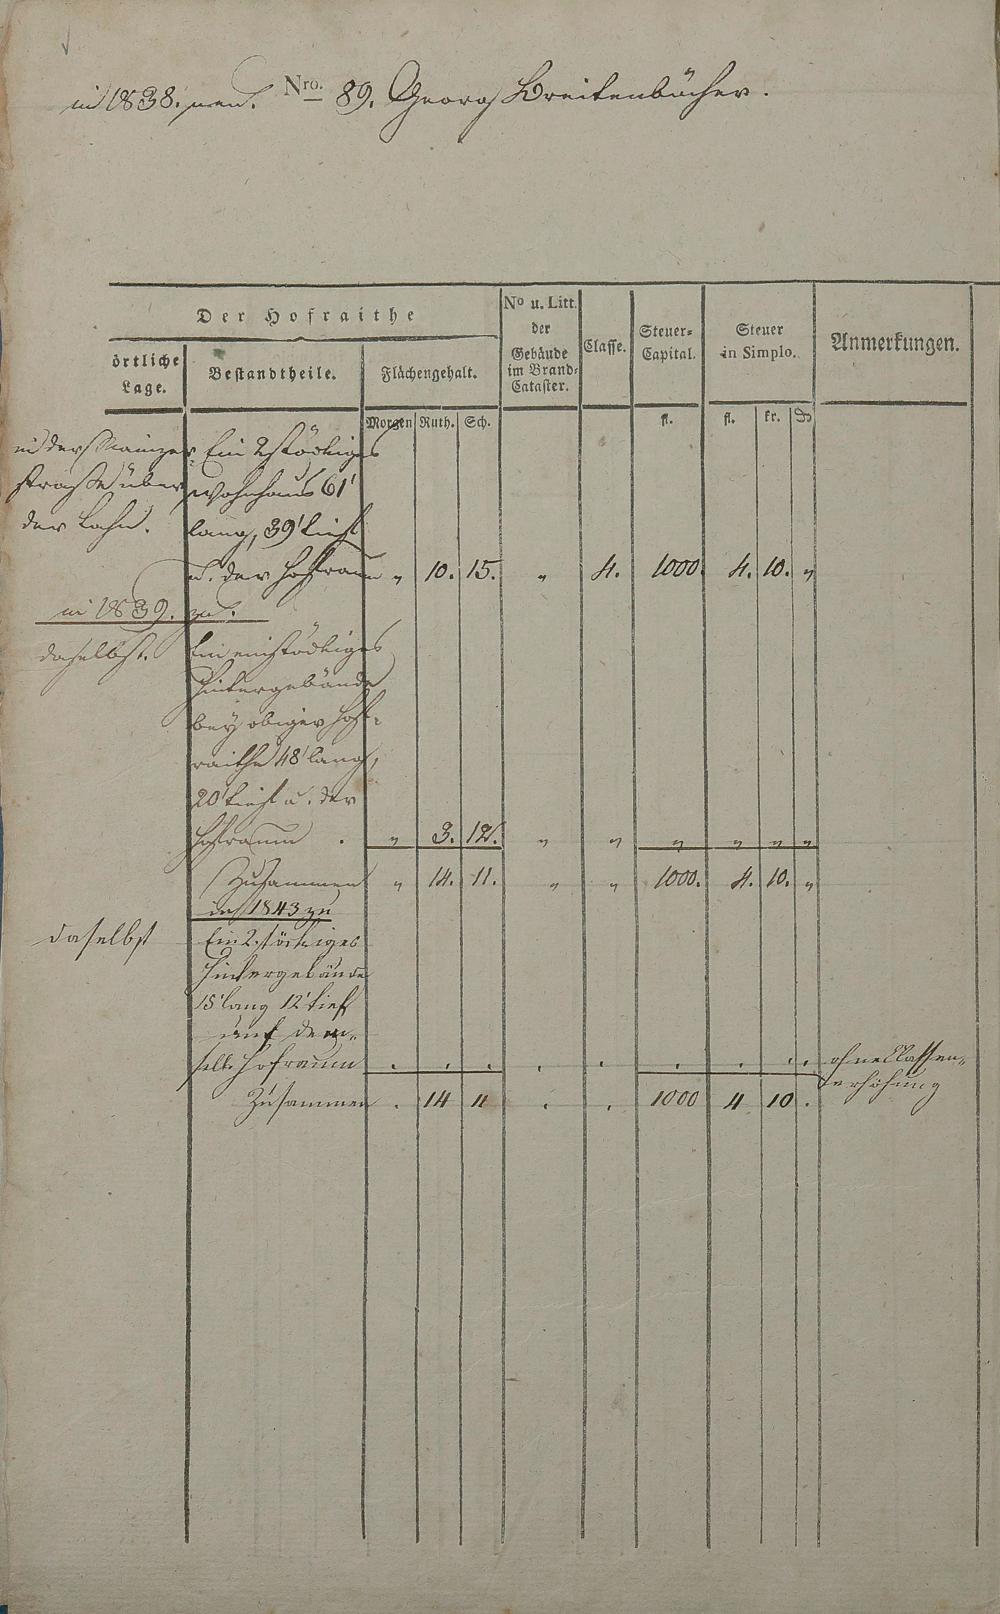 in 1838. neu. Nro. 89. Georg Breitenbücher.
Der Hofraithe
örtliche Lage.
Bestandtheile.
Flächengehalt.
No u. Litt. der Gebäude im Brand-Cataster.
Classe.
Steuer-Capital.
Steuer in Simplo.
Anmerkungen.
Morgen Ruth. Sch. fl. fl. kr.
in der Mainzer Ein 2stöckiges
straße über Wohnhaus 61'
der Lahn. lang, 39' tief
u. der Hofraum „ 10. 15. „ 4. 1000. 4. 10. „
in 1839. zu.
daselbst. Ein einstöckiges
Hintergebäude
bey obiger Hof-
raithe 48' lang,
20' tief u. der
Hofraum . „ 3. 12. „ „ „ „ „ „
Zusammen „ 14. 11. „ „ 1000. 4. 10. „
in 1843 zu
daselbst Ein 2stöckiges
Hintergebäude
15' lang 12' tief
auf dem-
selb. Hofraum . . . . . . . . . ohne Classen-
erhöhung
Zusammen . 14 11 . . 1000 4 10 .